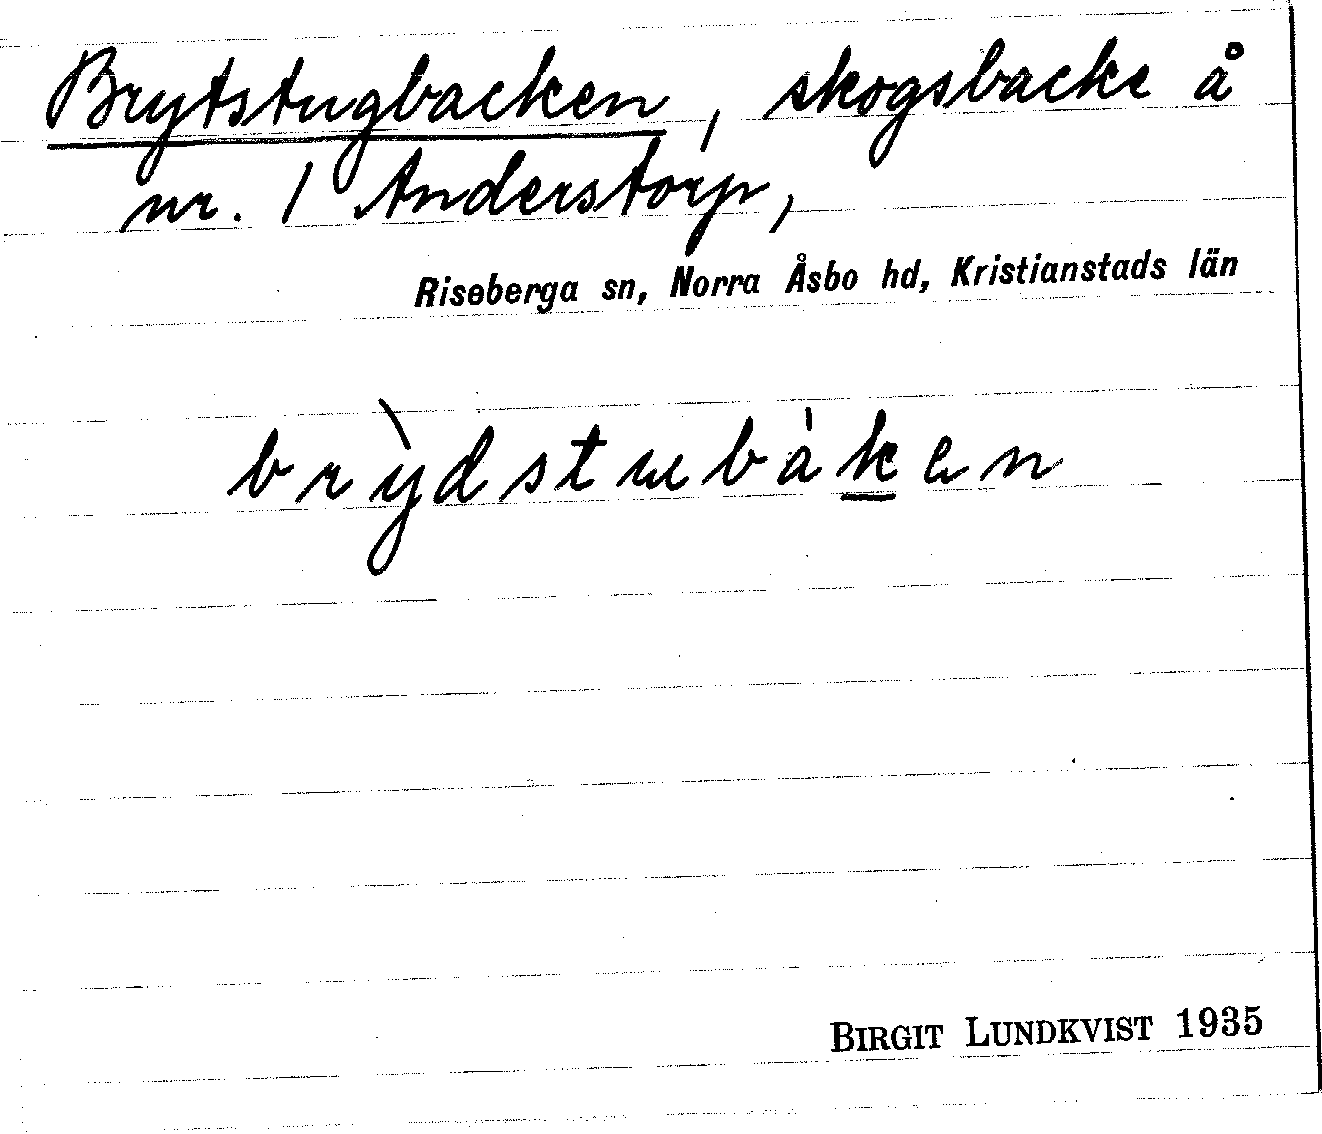 Brytstugbacken, skogsbacke å
nr. 1 Anderstorp,
Riseberga sn, Norra Åsbo hd, Kristianstads län
brỳdstubàken
BIRGIT LUNDKVIST 1935